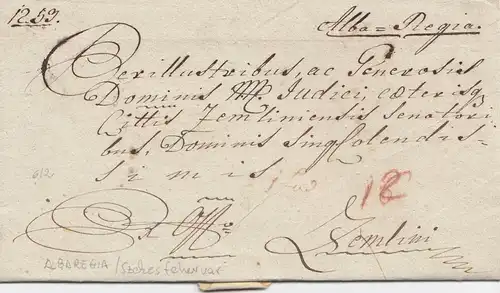 12.53.
Alba=Regia.
Perillustribus, ac Generosis
Dominis NN. Judici, cæterisq
Cittis Zemliniensis Senatori=
bus, Dominis singColendis=
simis
612
18
Ex Offo
Zemlini
ALBAREGIA / Szekesfehervar